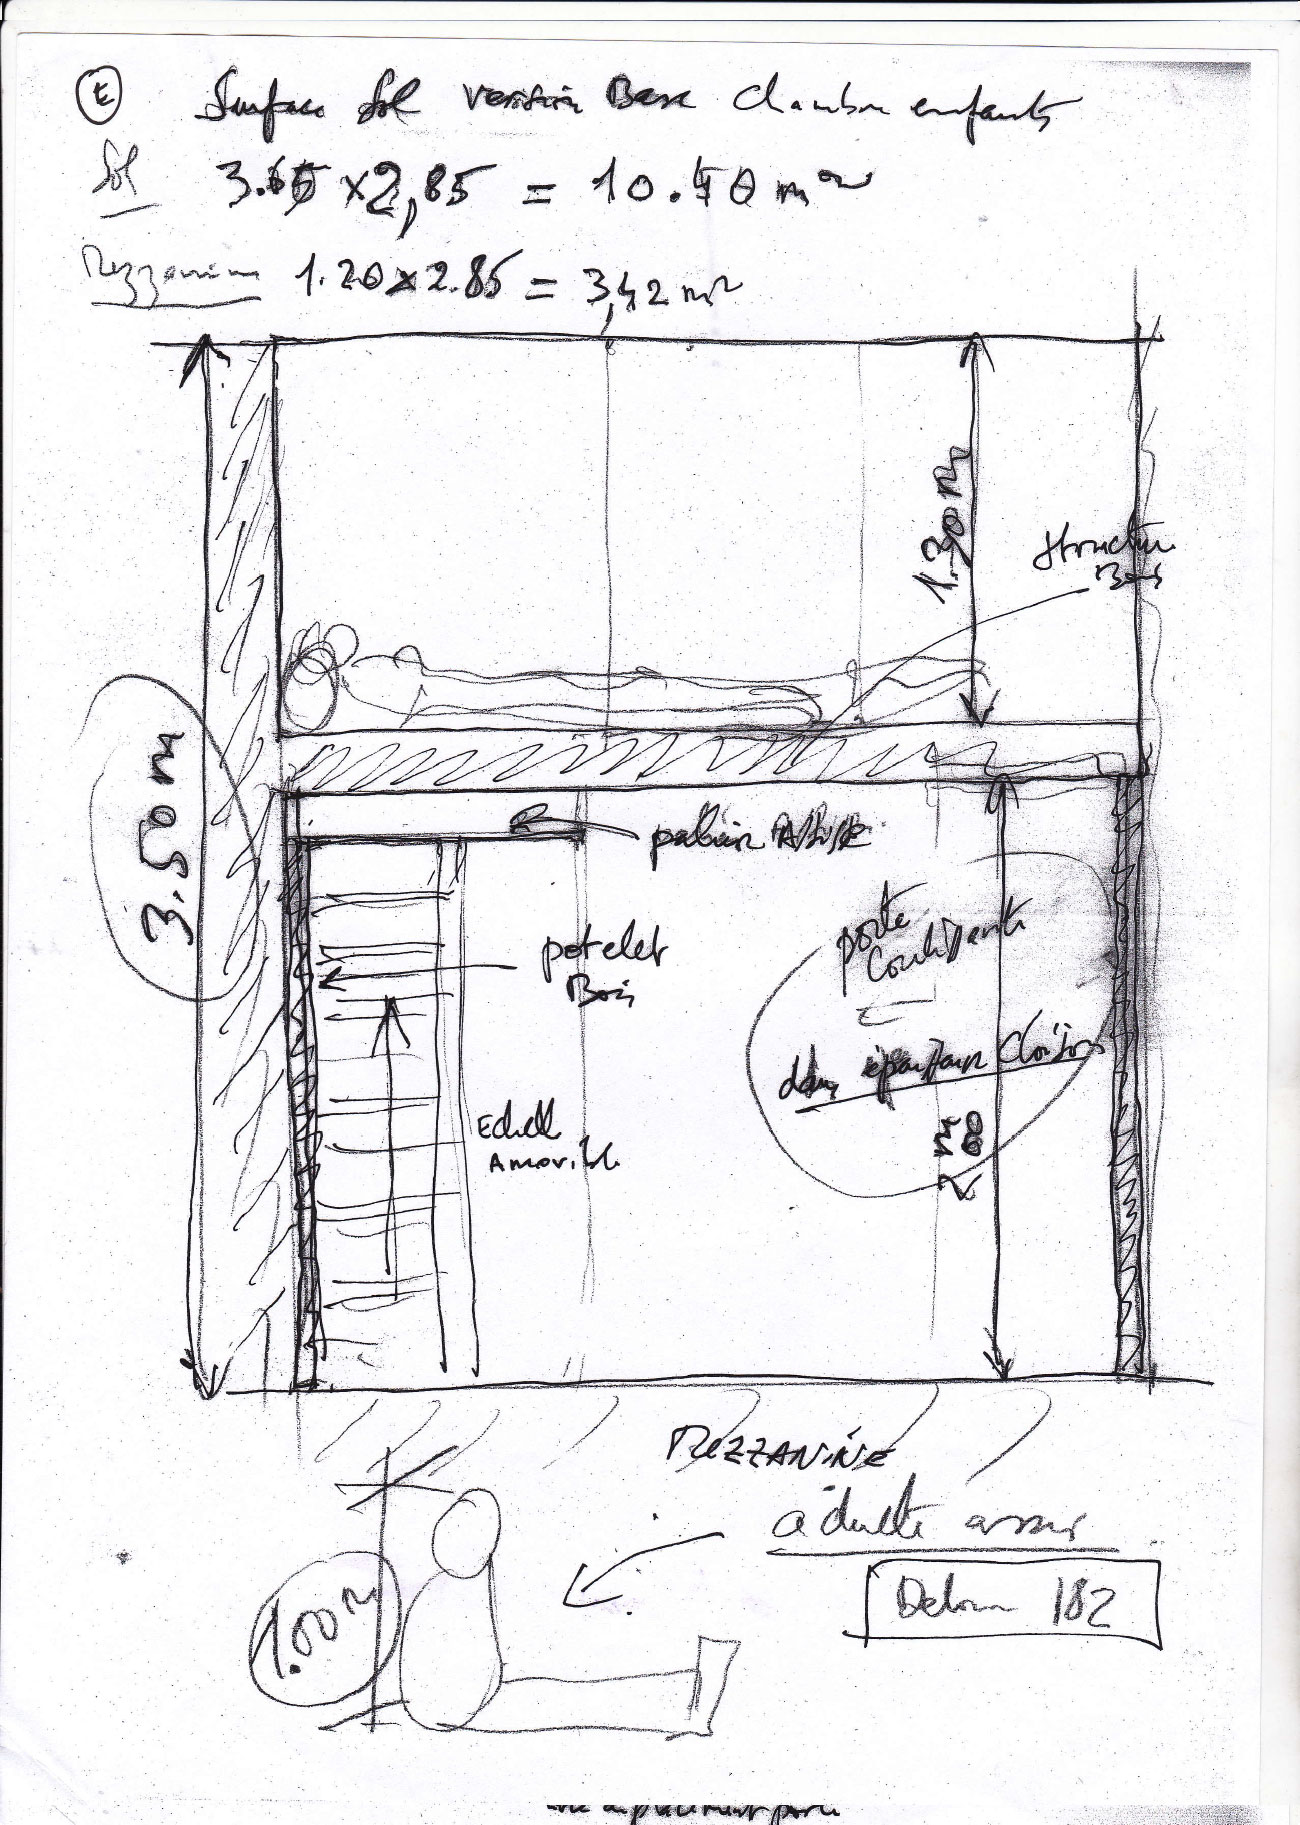 E Surface Sol version Base Chambre enfants
Sol 3.65 x 2,85 = 10.40 m²
Mezzanine 1.20 x 2.85 = 3,42 m²
1.30 m
structure
Bois
3.50 m
palier
potelet
Bois
porte
Coulissante
dans épaisseur Cloison
Echelle
Amovible
2 m 00
MEZZANINE
adulte assis
1.00 m
182